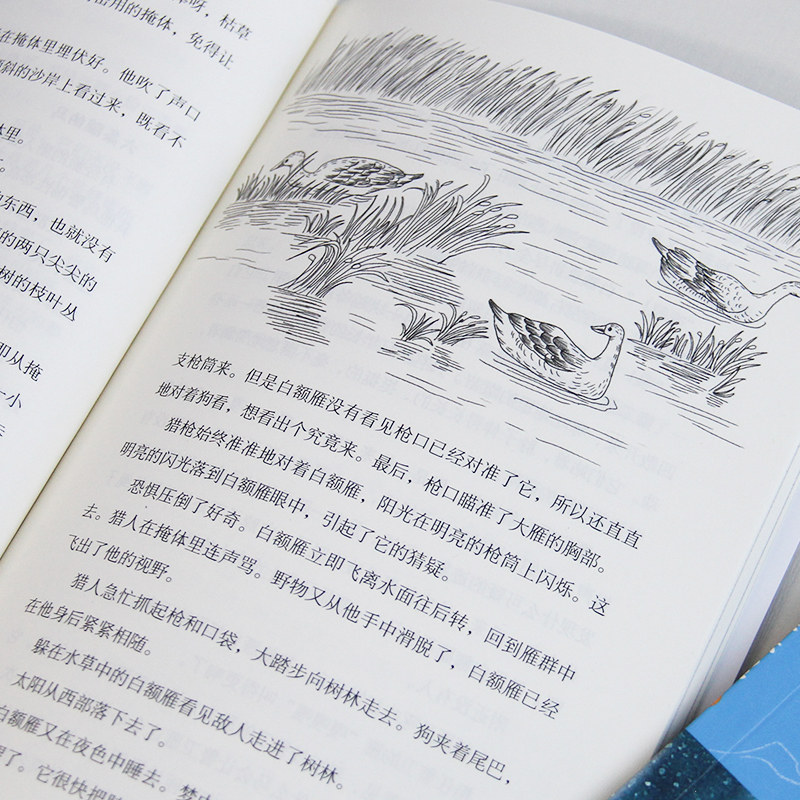 呀，枯草
出用的掩体，免得让
在掩体里埋伏好。他吹了声口
斜的沙岸上看过来，既看不
里。
东西，也就没有
的两只尖尖的
树的枝叶丛
即从掩
小
支枪筒来。但是白额雁没有看见枪口已经对准了它，所以还直直
地对着狗看，想看出个究竟来。最后，枪口瞄准了大雁的胸部。
猎枪始终准准地对着白额雁，阳光在明亮的枪筒上闪烁。这
明亮的闪光落到白额雁眼中，引起了它的猜疑。
恐惧压倒了好奇。白额雁立即飞离水面往后转，回到雁群中
去。猎人在掩体里连声骂。野物又从他手中滑脱了，白额雁已经
飞出了他的视野。
猎人急忙抓起枪和口袋，大踏步向树林走去。狗夹着尾巴，
在他身后紧紧相随。
躲在水草中的白额雁看见敌人走进了树林。
太阳从西部落下去了。
白额雁又在夜色中睡去。梦
了。它很快把